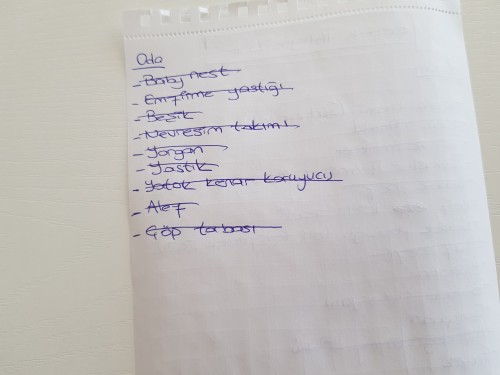 Oda
- Baby nest
- Emzirme yastığı
- Beşik
- Nevresim takımı
- Yorgan
- Yastık
- Yatak kenar koruyucu
- Alez
- Çöp torbası